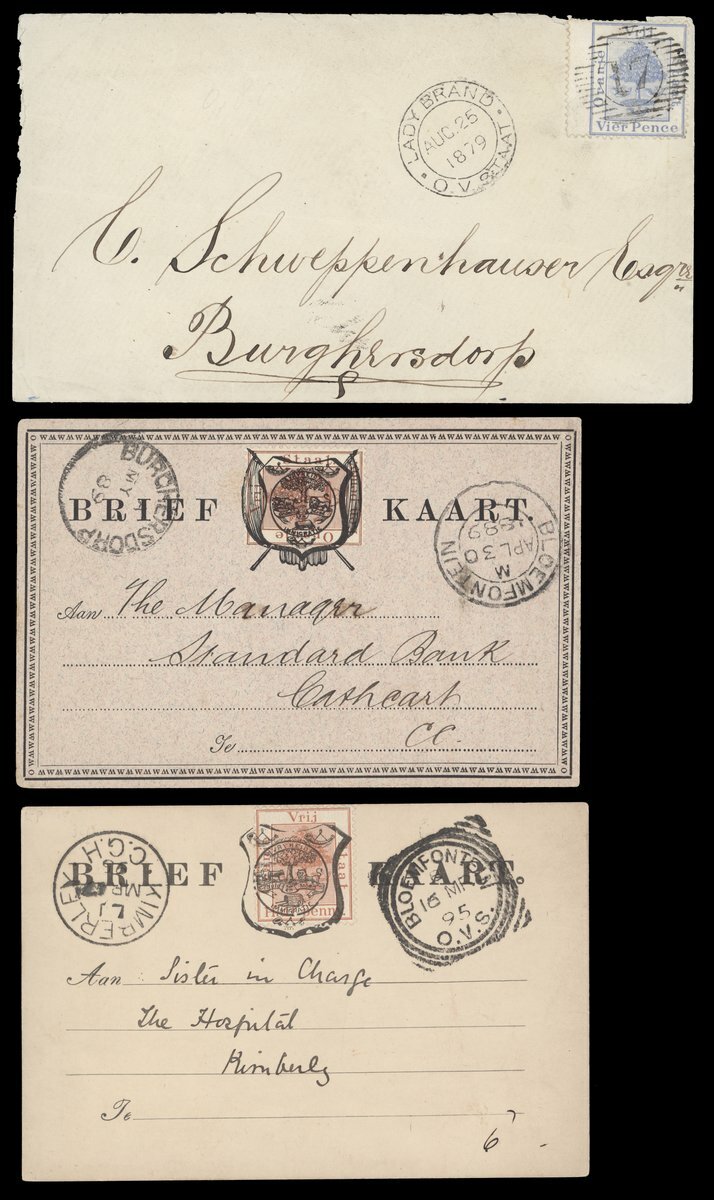 Oranje
Vrij
17
Vier Pence
LADY BRAND
AUG. 25
1879
O.V. STAAT
C. Schweppenhauser Esqre
Burghersdorp
BURGHERSDORP
MY
89
Staat
BRIEF KAART.
BLOEMFONTEIN
APL 30
1889
M
Aan The Manager
Standard Bank
Cathcart
Te CC.
KIMBERLEY
C.G.H.
MR
Vrij
Staat
Penny
BRIEF KAART.
BLOEMFONTEIN
16 MR
95
O.V.S.
Aan Sister in Charge
The Hospital
Kimberly
Te
6